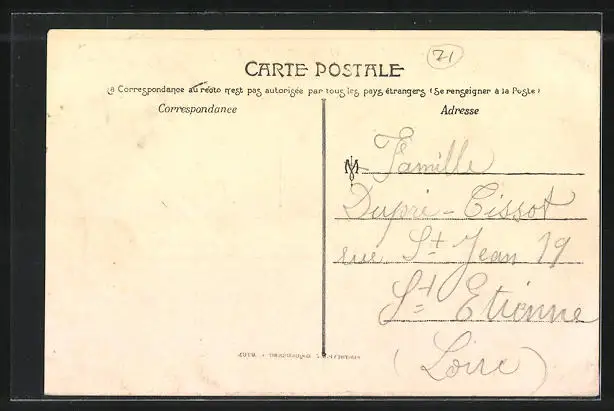 71
CARTE POSTALE
La Correspondance au recto n'est pas autorisée par tous les pays étrangers (Se renseigner à la Poste)
Correspondance
Adresse
M Famille
Dupré - Tissot
rue St Jean 19
St Etienne
(Loire)